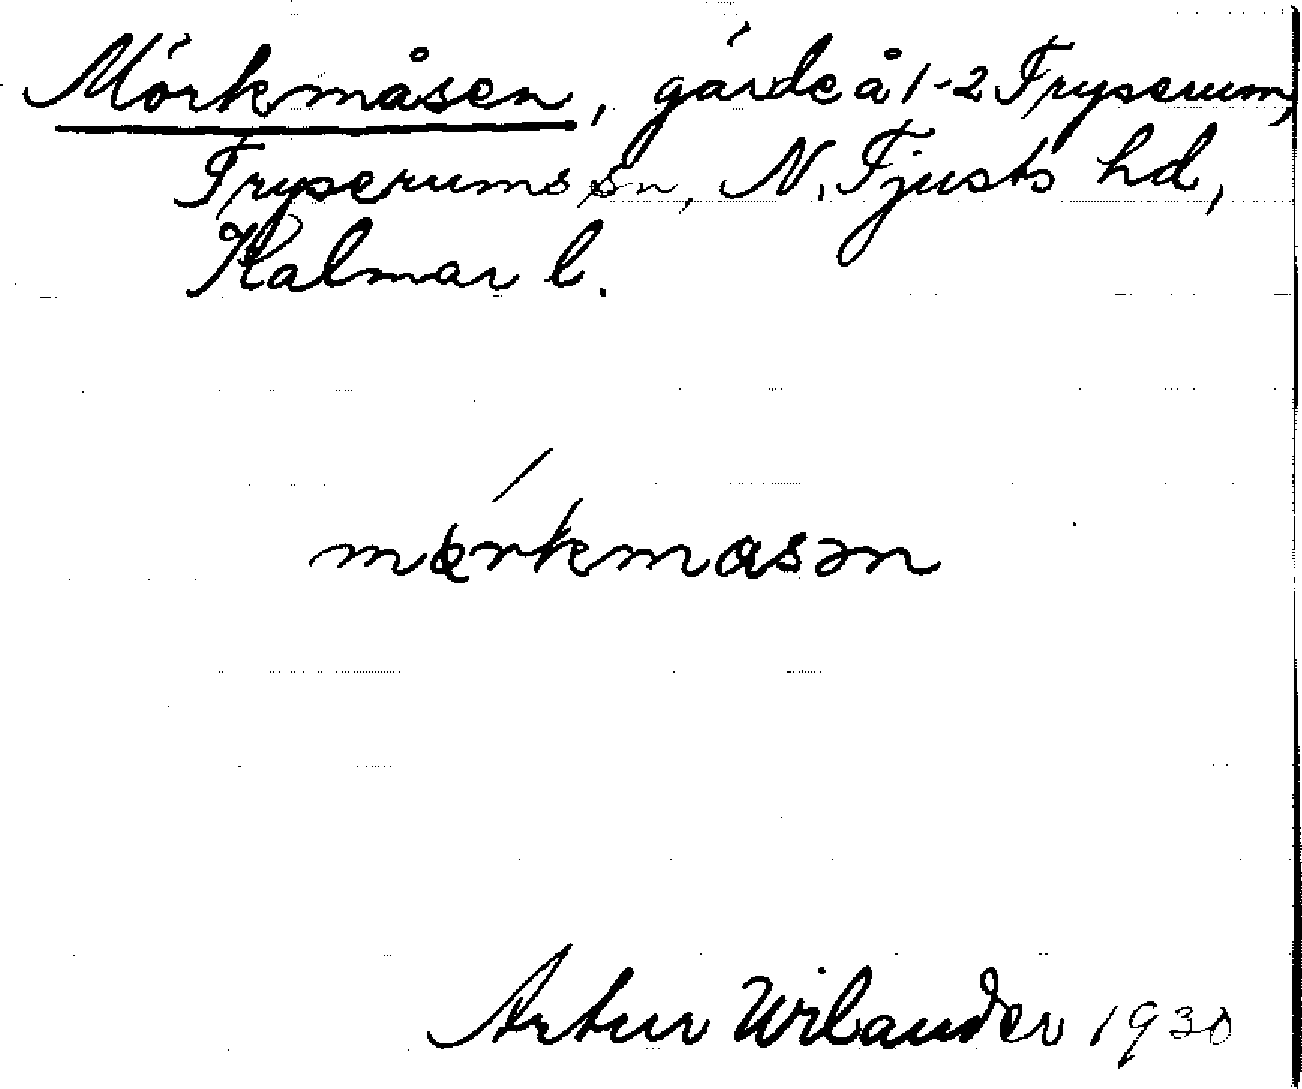 Mörkmåsen, gärde å 1-2 Fryserum,
Fryserums sn, N. Tjusts hd,
Kalmar l.
mörkmasən
Artur Wilander 1930